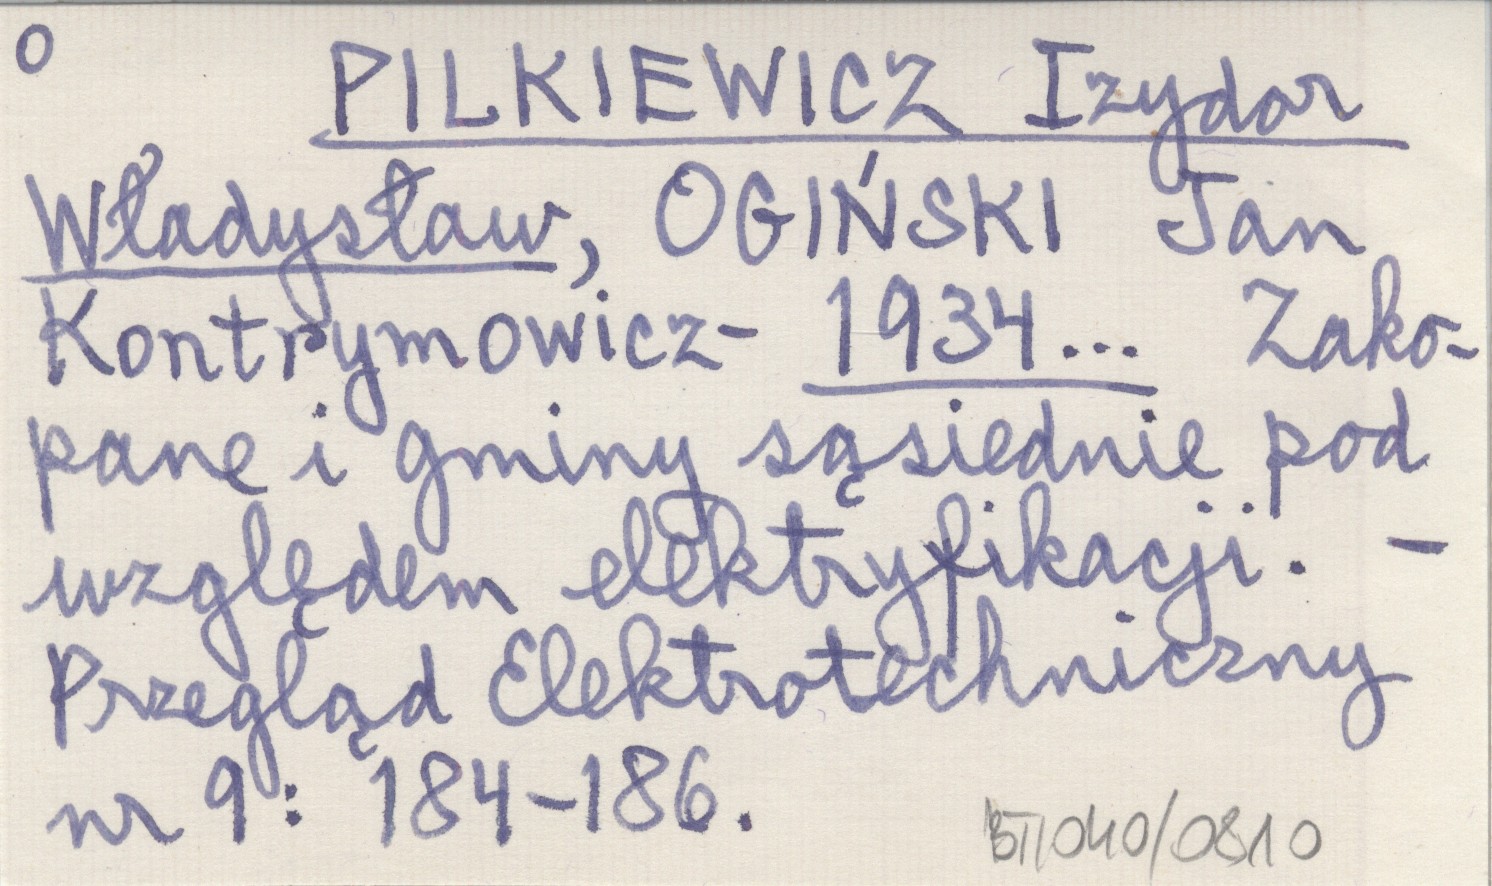 O
PILKIEWICZ Izydor
Władysław, OGIŃSKI Jan
Kontrymowicz- 1934... Zako-
pane i gminy sąsiednie pod
względem elektryfikacji. -
Przegląd Elektrotechniczny
nr 9: 184-186.
BT/040/0810